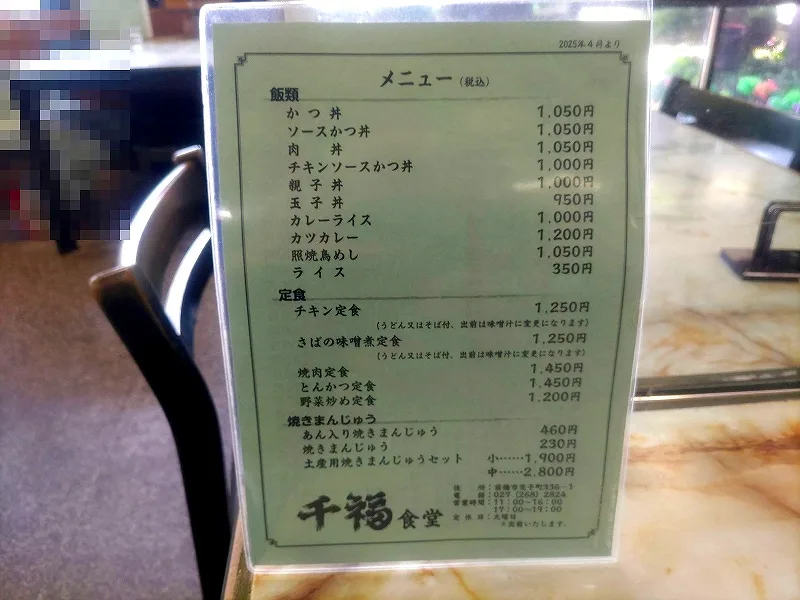 2025年4月より
メニュー(税込)
飯類
かつ丼 1,050円
ソースかつ丼 1,050円
肉丼 1,050円
チキンソースかつ丼 1,000円
親子丼 1,000円
玉子丼 950円
カレーライス 1,000円
カツカレー 1,200円
照焼鳥めし 1,050円
ライス 350円
定食
チキン定食 1,250円
(うどん又はそば付、出前は味噌汁に変更になります)
さばの味噌煮定食 1,250円
(うどん又はそば付、出前は味噌汁に変更になります)
焼肉定食 1,450円
とんかつ定食 1,450円
野菜炒め定食 1,200円
焼きまんじゅう
あん入り焼きまんじゅう 460円
焼きまんじゅう 230円
土産用焼きまんじゅうセット 小……1,900円
中……2,800円
千福食堂
住所:前橋市荒子町336-1
電話:027(268)2824
営業時間:11:00~16:00
17:00~19:00
定休日:火曜日
*出前いたします。